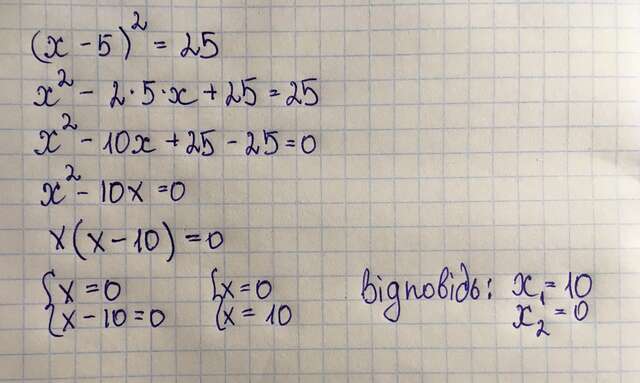 (x - 5)² = 25
x² - 2·5·x + 25 = 25
x² - 10x + 25 - 25 = 0
x² - 10x = 0
x(x - 10) = 0
{x = 0 {x = 0 Відповідь: x₁ = 10
{x - 10 = 0 {x = 10 x₂ = 0